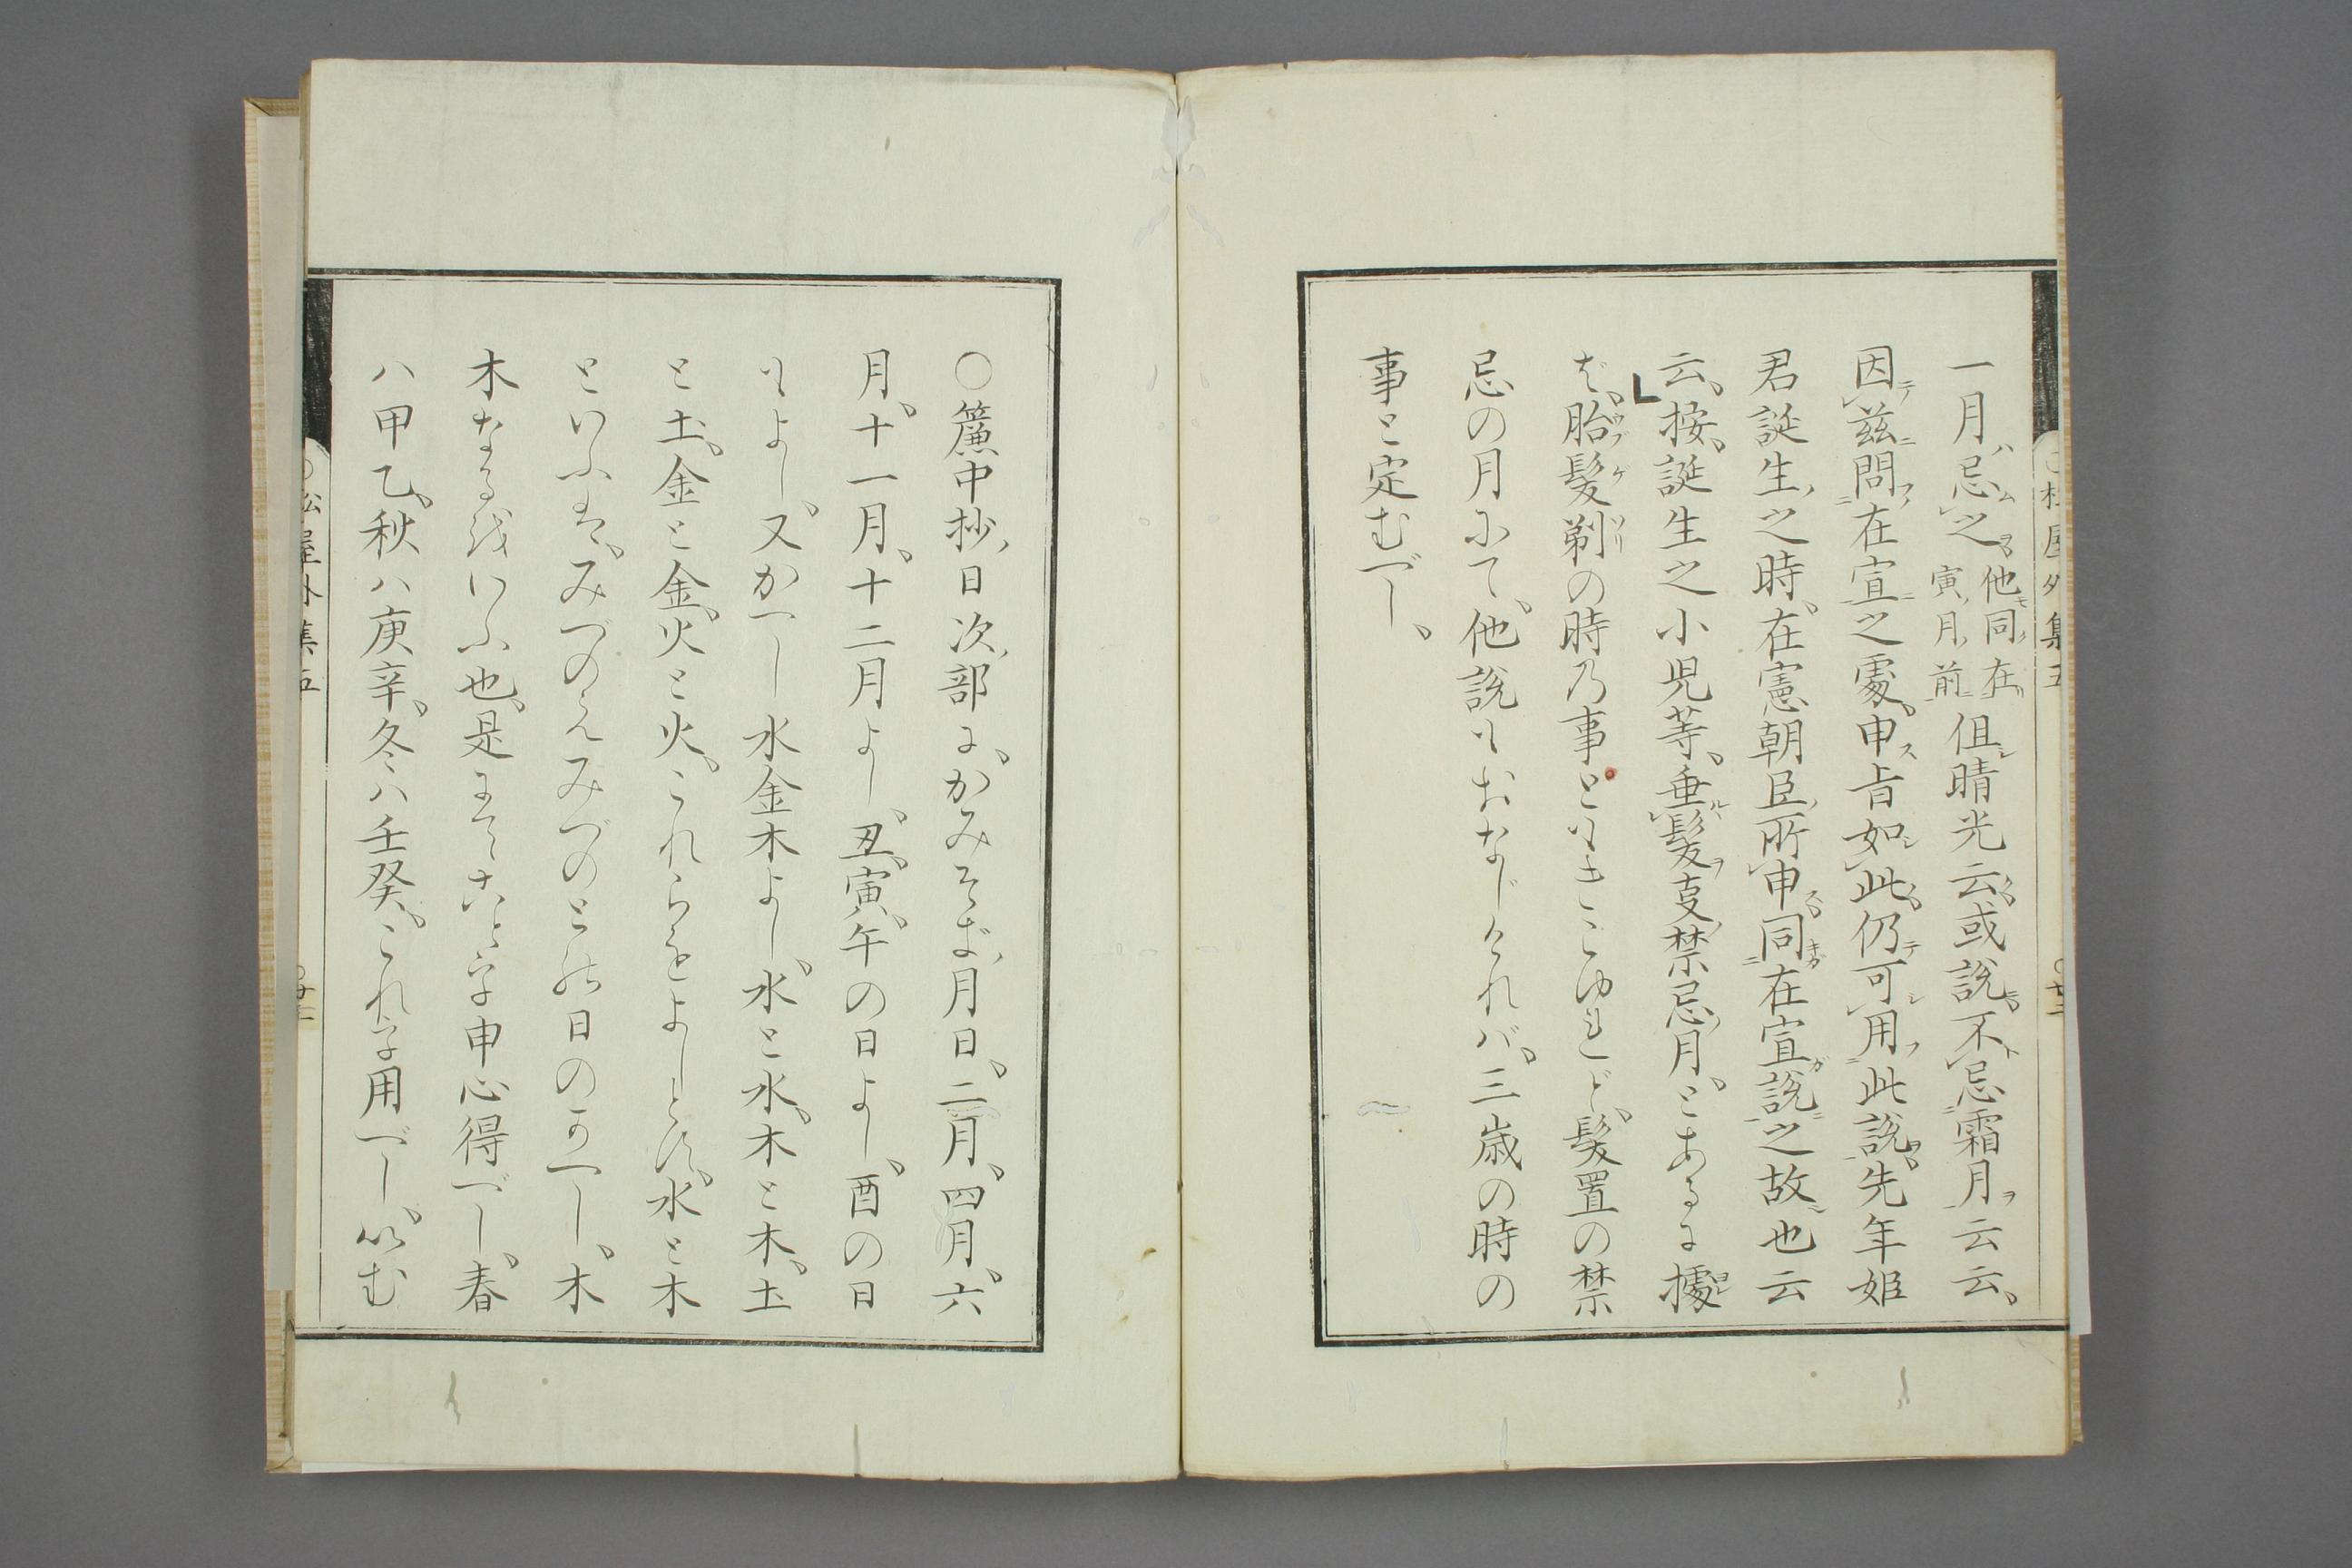 一月忌之他同在寅月前但晴光云或説不忌霜月云云、
因兹問在宣之處、申旨如此、仍可用此説、先年姫
君誕生之時、在憲朝臣所申同在宣説之故也云
云、按、誕生之小児等、垂髪支禁忌月、とあるに據
ば、胎髪剃の時乃事ときこゆれど、髪置の禁
忌の月にて、他説もおなじければ、三歳の時の
事と定むべし、
○簾中抄、日次部に、かみそぎ月日、二月、四月、六
月、十一月、十二月よし、丑、寅、午の日よし、酉の日
もよし、又かへし水金木よし、水と水、木と木、土
と土、金と金、火と火、これらをよしとす、水と木
といふは、みづのえみづのとの日のかへし、木
木なるをいふ也、是にてこと字申心得べし、春
ハ甲乙、秋ハ庚辛、冬ハ壬癸、これを用べし、いむ
松屋外集五